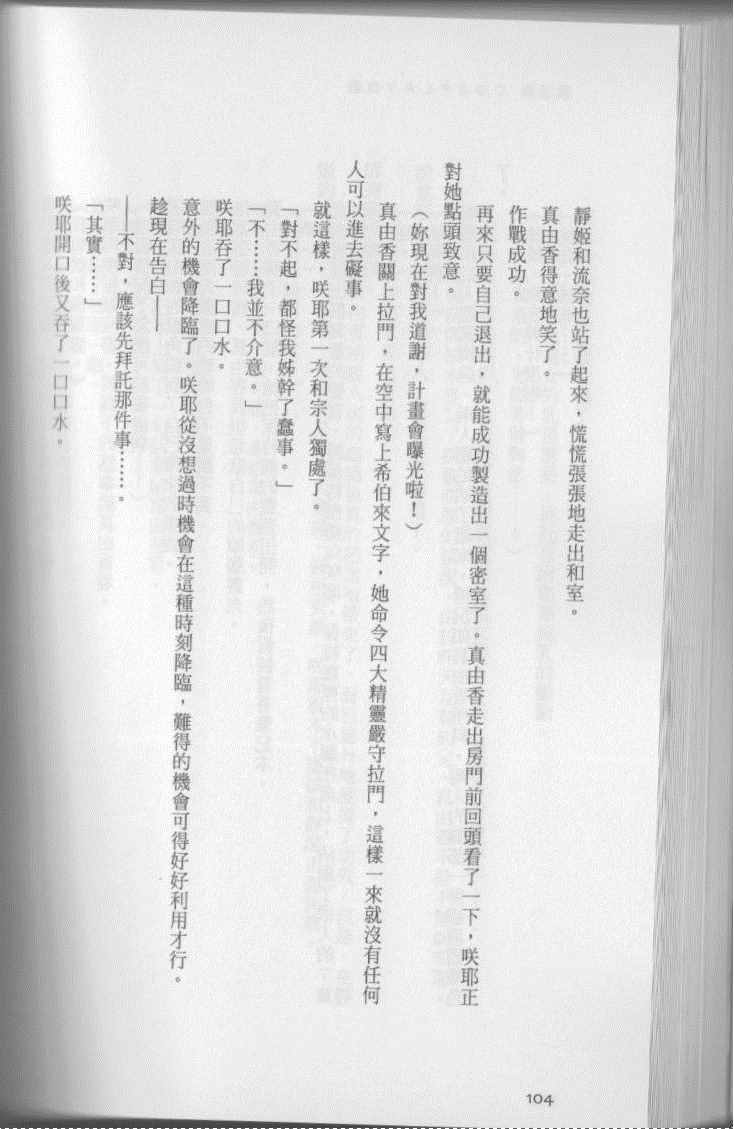 靜姬和流奈也站了起來，慌慌張張地走出和室。
真由香得意地笑了。
作戰成功。
再來只要自己退出，就能成功製造出一個密室了。真由香走出房門前回頭看了一下，咲耶正
對她點頭致意。
（妳現在對我道謝，計畫會曝光啦！）
真由香關上拉門，在空中寫上希伯來文字，她命令四大精靈嚴守拉門，這樣一來就沒有任何
人可以進去礙事。
就這樣，咲耶第一次和宗人獨處了。
「對不起，都怪我姊幹了蠢事。」
「不……我並不介意。」
咲耶吞了一口口水。
意外的機會降臨了。咲耶從沒想過時機會在這種時刻降臨，難得的機會可得好好利用才行。
趁現在告白──
──不對，應該先拜託那件事……。
「其實……」
咲耶開口後又吞了一口口水。
104